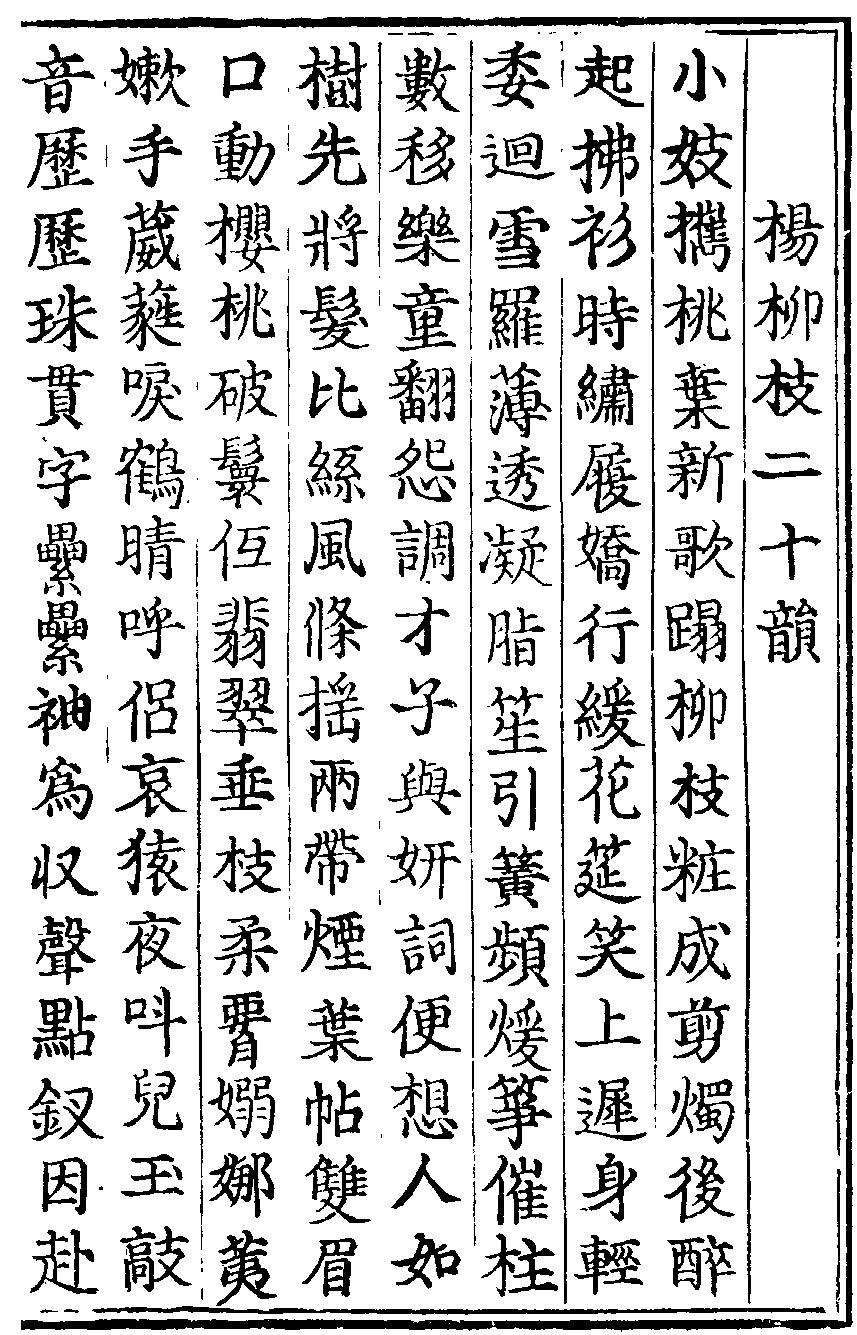 楊柳枝二十韻
小妓攜桃葉新歌蹋柳枝粧成剪燭後醉
起拂衫時繡履嬌行緩花筵笑上遲身輕
委迴雪羅薄透凝脂笙引簧頻煖箏催柱
數移樂童翻怨調才子與妍詞便想人如
樹先將髮比絲風條揺兩帶煙葉帖雙眉
口動櫻桃破鬟低翡翠垂枝柔腰嫋娜荑
嫩手葳蕤唳鶴晴呼侶哀猿夜呌兒玉敲
音歷歷珠貫字纍纍袖爲収聲點釵因赴